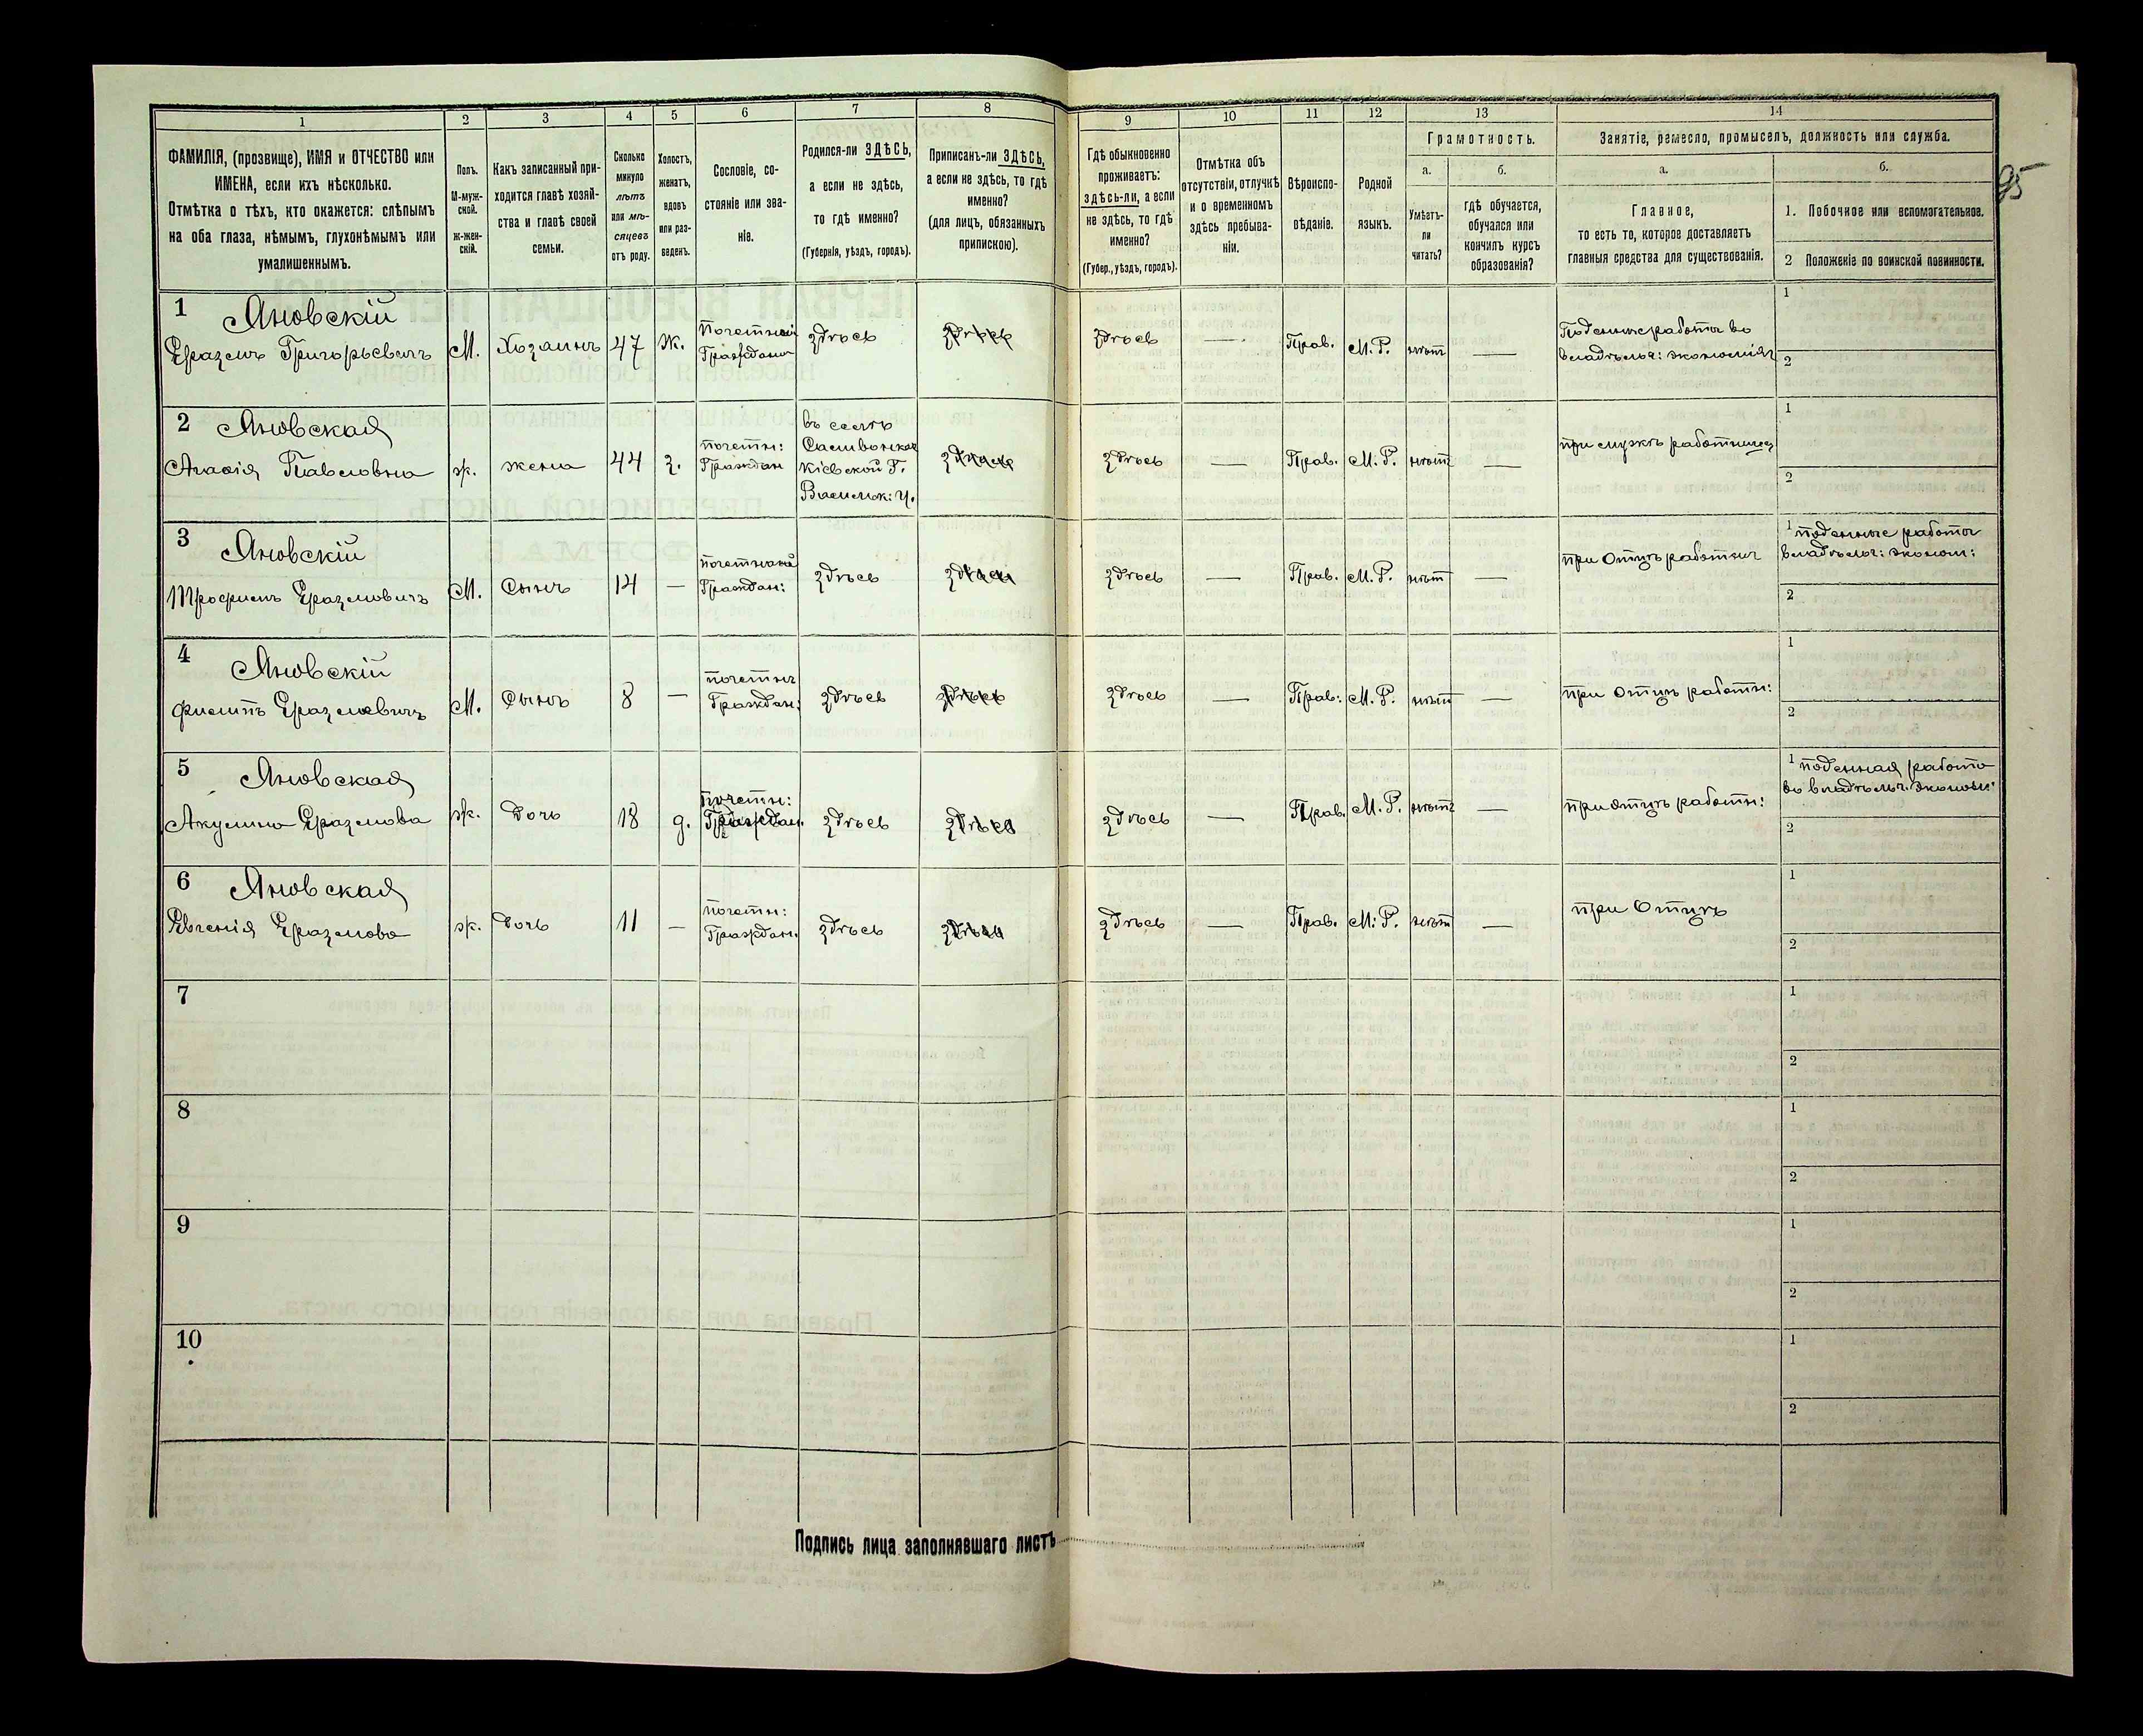 1 2 3 4 5 6 7 8 9 10 11 12 13 14
ФАМИЛІЯ, (прозвище), ИМЯ и ОТЧЕСТВО или
ИМЕНА, если ихъ нѣсколько.
Отмѣтка о тѣхъ, кто окажется: слѣпымъ
на оба глаза, нѣмымъ, глухонѣмымъ или
умалишеннымъ.
Полъ.
М-муж-
ской.
ж-жен-
скій.
Какъ записанный при-
ходится главѣ хозяй-
ства и главѣ своей
семьи.
Сколько
минуло
лѣтъ
или мѣ-
сяцевъ
отъ роду.
Холостъ,
женатъ,
вдовъ
или раз-
веденъ.
Сословіе, со-
стояніе или зва-
ніе.
Родился-ли ЗДѢСЬ,
а если не здѣсь,
то гдѣ именно?
(Губернія, уѣздъ, городъ).
Приписанъ-ли ЗДѢСЬ,
а если не здѣсь, то гдѣ
именно?
(для лицъ, обязанныхъ
припискою).
Гдѣ обыкновенно
проживаетъ:
здѣсь-ли, а если
не здѣсь, то гдѣ
именно?
(Губер., уѣздъ, городъ).
Отмѣтка объ
отсутствіи, отлучкѣ
и о временномъ
здѣсь пребыва-
ніи.
Вѣроиспо-
вѣданіе.
Родной
языкъ.
Грамотность.
а.
Умѣетъ-
ли
читать?
б.
гдѣ обучается,
обучался или
кончилъ курсъ
образованія?
Занятіе, ремесло, промыселъ, должность или служба.
а.
Главное,
то есть то, которое доставляетъ
главныя средства для существованія.
б.
1. Побочное или вспомогательное.
2 Положеніе по воинской повинности.
95
1 Яновскій
Еразмъ Григорьевичъ
М.
Хозаинъ
47
Ж.
Почетный
Граждан
здѣсь
здѣсь
здѣсь
—
Прав.
М.Р.
нѣтъ
—
Поденные работы во
владѣльч: экономіях
1
2
2 Яновская
Павловна
ж.
жена
44
з.
почетн:
Граждан
въ селѣ
Кіевской Г.
Васильк: У.
здѣсь
здѣсь
—
Прав.
М.Р.
нѣтъ
—
при мужѣ работница
1
2
3 Яновскій
Трофимъ Еразмовичъ
М.
Сынъ
14
—
почетный
Граждан:
здѣсь
здѣсь
здѣсь
—
Прав.
М.Р.
нѣт
—
при Отцѣ работник
1 поденные работы
владѣльч: эконом:
2
4 Яновскій
Филипъ Еразмовичъ
М.
Сынъ
8
—
почетны
Граждан:
здѣсь
здѣсь
здѣсь
—
Прав:
М.Р.
нѣт
—
при Отцѣ работн:
1
2
5 Яновская
Акулина Еразмова
ж.
Дочь
18
д.
почетн:
Граждан.
здѣсь
здѣсь
здѣсь
—
Прав.
М.Р.
нѣтъ
—
при отцѣ работн:
1 поденная работа
во владѣльч. эконом:
2
6 Яновская
Евгенія Еразмова
ж.
Дочь
11
—
почетн:
Граждан.
здѣсь
здѣсь
здѣсь
—
Прав.
М:Р.
нѣт
—
при Отцѣ
1
2
7
1
2
8
1
2
9
1
2
10
1
2
Подпись лица заполнявшаго листъ